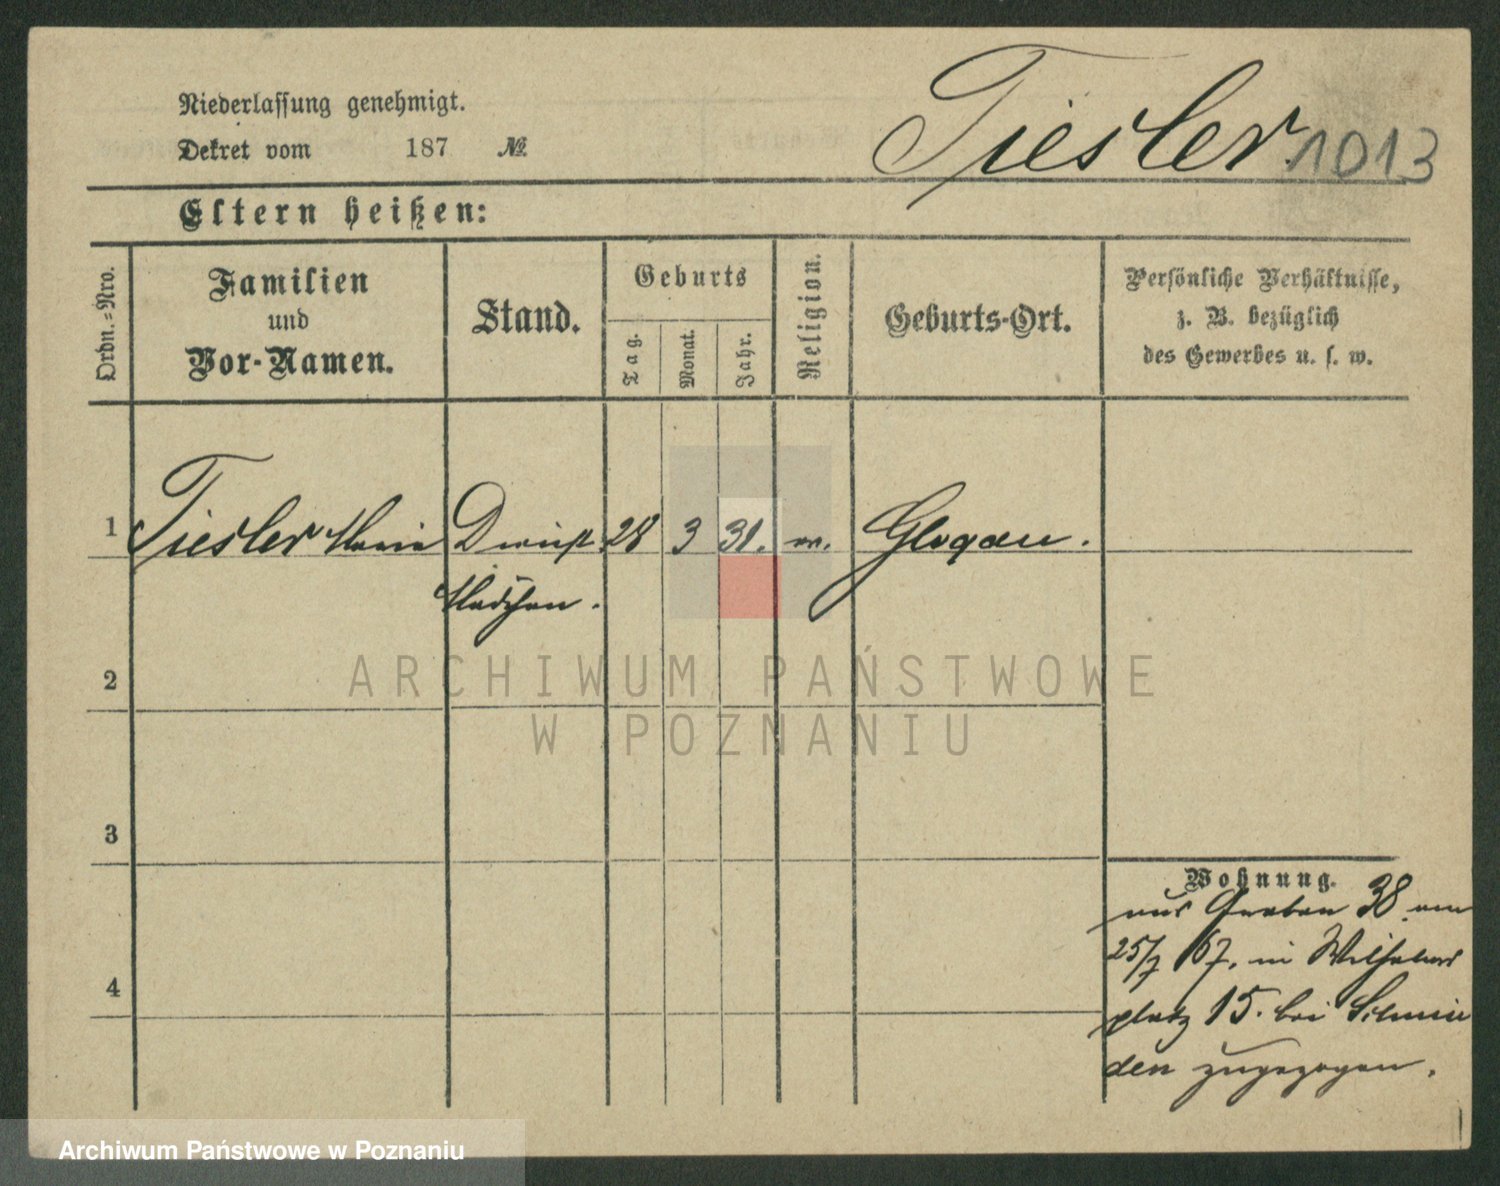 Niederlassung genehmigt.
Dekret vom 187 №
Tiesler 1013
Eltern heißen:
Ordn.-Nro.
Familien
und
Vor-Namen.
Stand.
Geburts
Tag.
Monat.
Jahr.
Religion.
Geburts-Ort.
Persönliche Verhältnisse,
z. B. bezüglich
des Gewerbes u. s. w.
1 Tiesler Maria Dienst 28 3 31. Glogau.
Mädchen.
2
3
4
Wohnung.
aus Graben 38 am
25/7 67. in Wilhelms
platz 15. bei
den zugezogen.
ARCHIWUM PAŃSTWOWE
W POZNANIU
Archiwum Państwowe w Poznaniu